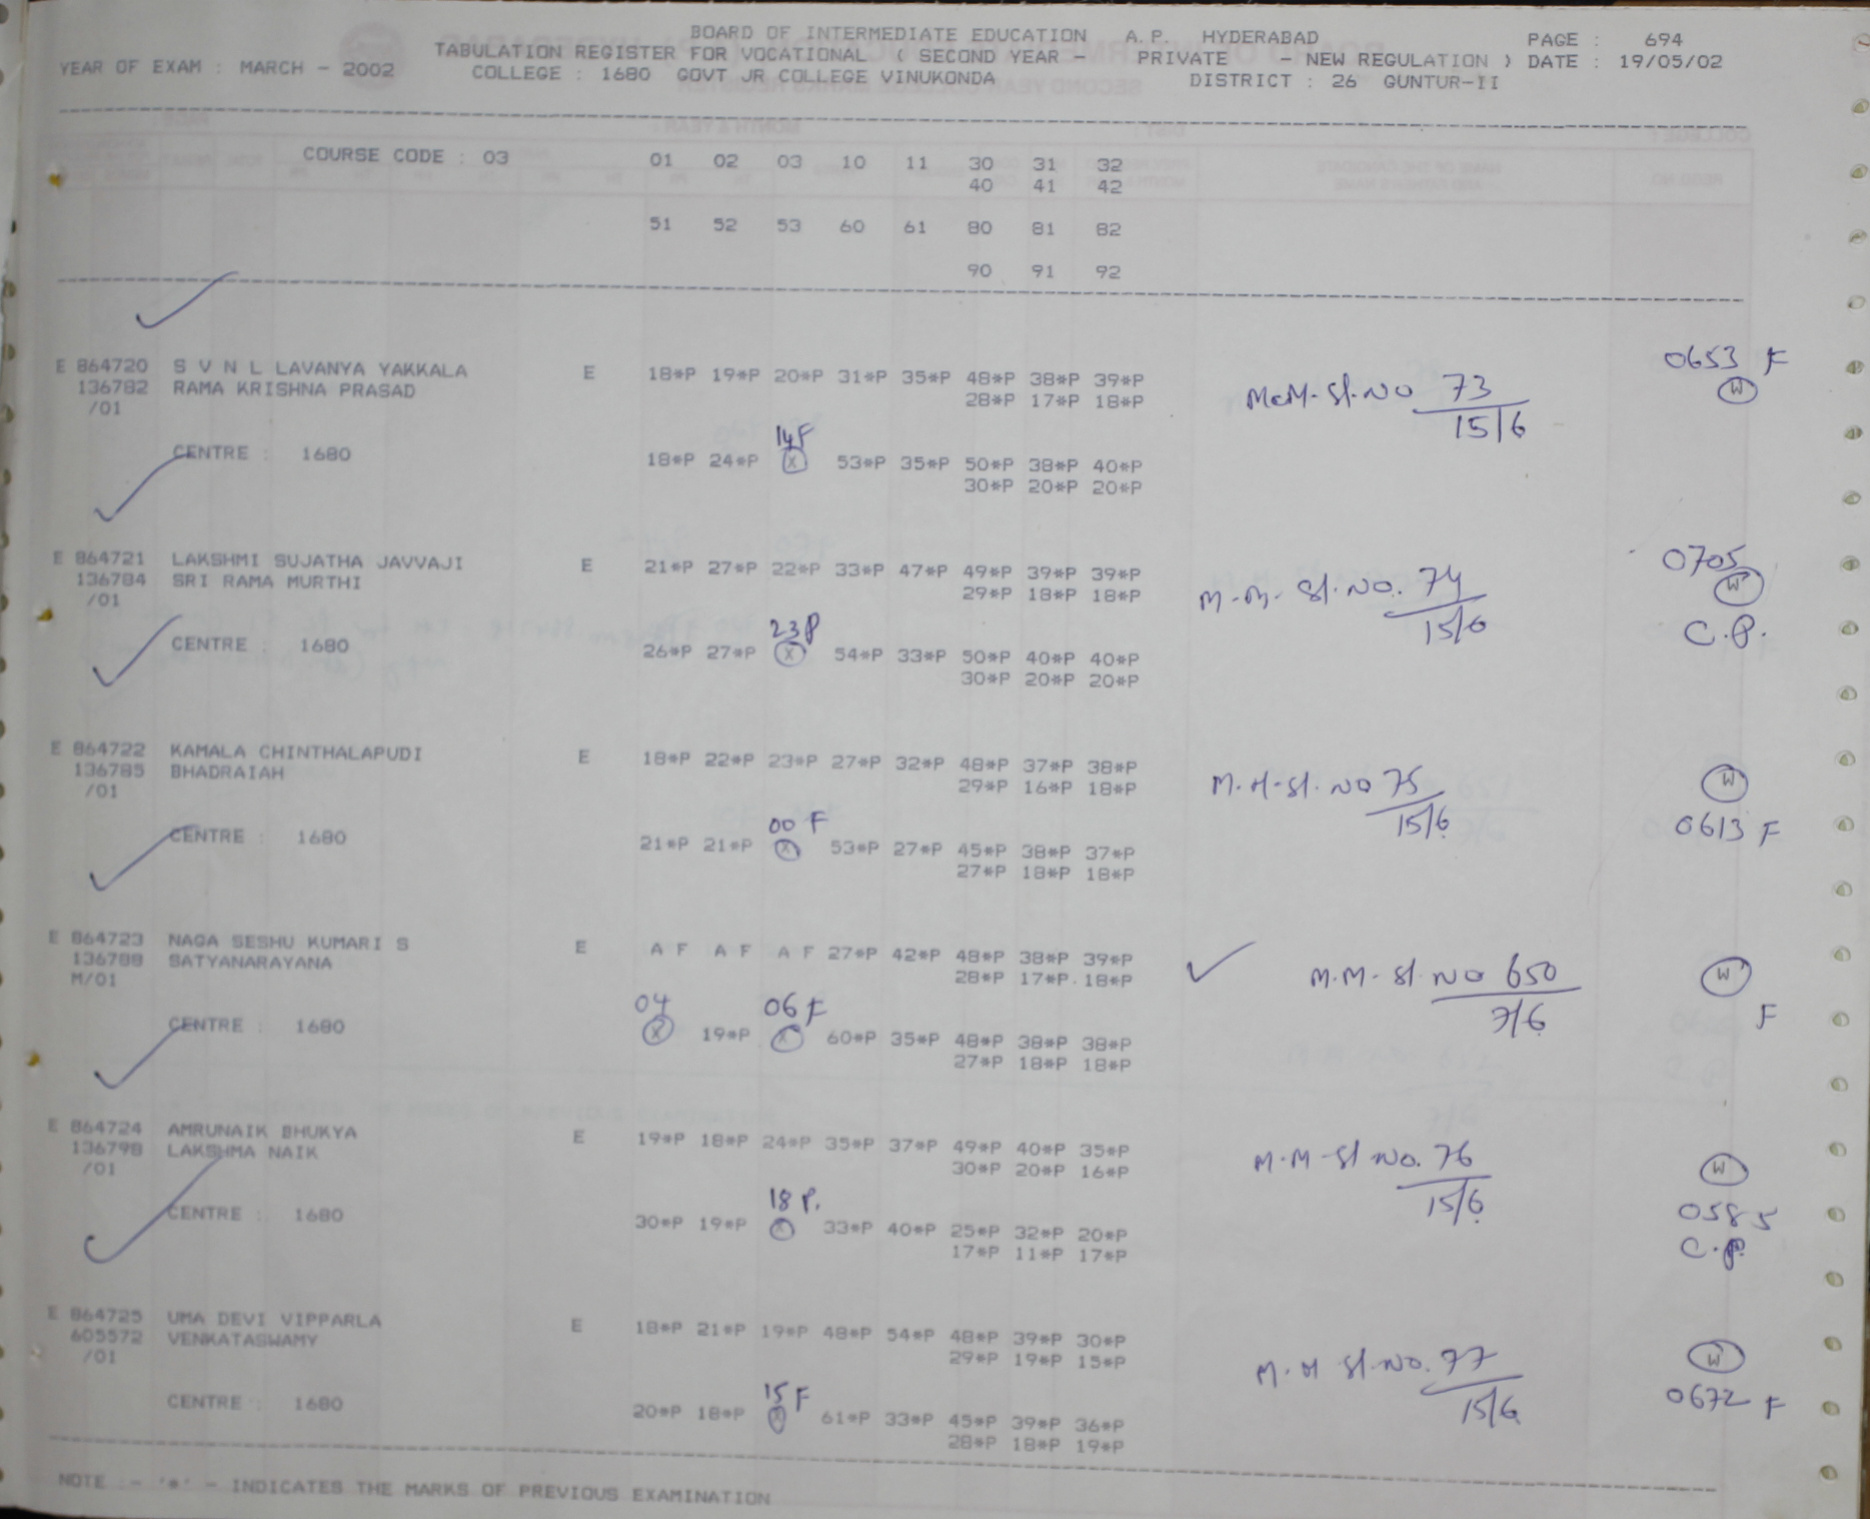 BOARD OF INTERMEDIATE EDUCATION A.P. HYDERABAD PAGE : 694
TABULATION REGISTER FOR VOCATIONAL ( SECOND YEAR - PRIVATE - NEW REGULATION ) DATE : 19/05/02
YEAR OF EXAM : MARCH - 2002 COLLEGE : 1680 GOVT JR COLLEGE VINUKONDA DISTRICT : 26 GUNTUR-II
COURSE CODE : 03 01 02 03 10 11 30 31 32
40 41 42
51 52 53 60 61 80 81 82
90 91 92
E 864720 S V N L LAVANYA YAKKALA E 18*P 19*P 20*P 31*P 35*P 48*P 38*P 39*P 0653 F
136782 RAMA KRISHNA PRASAD 28*P 17*P 18*P McM-Sl.No 73 W
/01 15/6
14F
CENTRE : 1680 18*P 24*P X 53*P 35*P 50*P 38*P 40*P
30*P 20*P 20*P
E 864721 LAKSHMI SUJATHA JAVVAJI E 21*P 27*P 22*P 33*P 47*P 49*P 39*P 39*P 0705
136784 SRI RAMA MURTHI 29*P 18*P 18*P M-M- Sl.No. 74 W
/01 15/6 C.P.
23P
CENTRE : 1680 26*P 27*P X 54*P 33*P 50*P 40*P 40*P
30*P 20*P 20*P
E 864722 KAMALA CHINTHALAPUDI E 18*P 22*P 23*P 27*P 32*P 48*P 37*P 38*P
136785 BHADRAIAH 29*P 16*P 18*P M.M-Sl. No 75 W
/01 15/6 0613 F
00 F
CENTRE : 1680 21*P 21*P X 53*P 27*P 45*P 38*P 37*P
27*P 18*P 18*P
E 864723 NAGA SESHU KUMARI S E A F A F A F 27*P 42*P 48*P 38*P 39*P
136788 SATYANARAYANA 28*P 17*P 18*P M.M- Sl. No 650 W
M/01 7/6 F
04 06 F
CENTRE : 1680 X 19*P X 60*P 35*P 48*P 38*P 38*P
27*P 18*P 18*P
E 864724 AMRUNAIK BHUKYA E 19*P 18*P 24*P 35*P 37*P 49*P 40*P 35*P
136798 LAKSHMA NAIK 30*P 20*P 16*P M.M-Sl No. 76 W
/01 15/6 0585
18 P. C.P.
CENTRE : 1680 30*P 19*P X 33*P 40*P 25*P 32*P 20*P
17*P 11*P 17*P
E 864725 UMA DEVI VIPPARLA E 18*P 21*P 19*P 48*P 54*P 48*P 39*P 30*P
605572 VENKATASWAMY 29*P 19*P 15*P M.M Sl.No. 77 W
/01 15/6 0672 F
15 F
CENTRE : 1680 20*P 18*P X 61*P 33*P 45*P 39*P 36*P
28*P 18*P 19*P
NOTE :- '*' - INDICATES THE MARKS OF PREVIOUS EXAMINATION